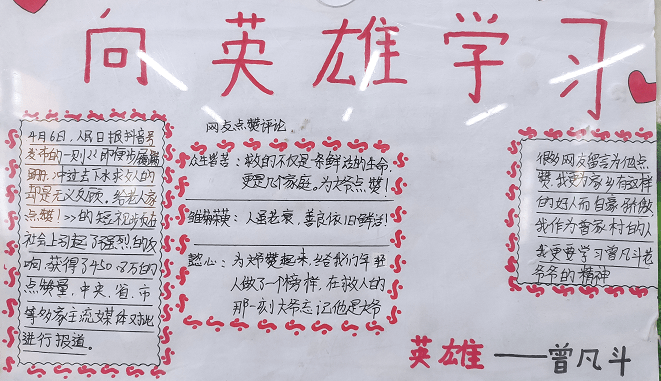 向英雄学习
4月6日,人民日报抖音号
发布的一则《即便步履蹒
跚,冲过去下水求人的
却是无义反顾。给老人家
点赞!》的短视步在
社会上引起了强烈的反
响,获得了450.8万的
点赞量,中央、省、市
等多家主流媒体对此
进行报道。
网友点赞评论。
众生皆苦:救的不仅是条鲜活的生命,
更是几个家庭。为大爷点赞!
人虽老衰,善良依旧鲜活!
懿心:为大爷赞起来,给我们年轻
人做了个榜样,在救人的
那一刻大爷忘记他是大爷
很多网友留言为他点
赞,我更为家乡有这样
的好人而自豪骄傲
我作为曾家村的人
我更要学习曾凡斗老
爷爷的精神
英雄——曾凡斗